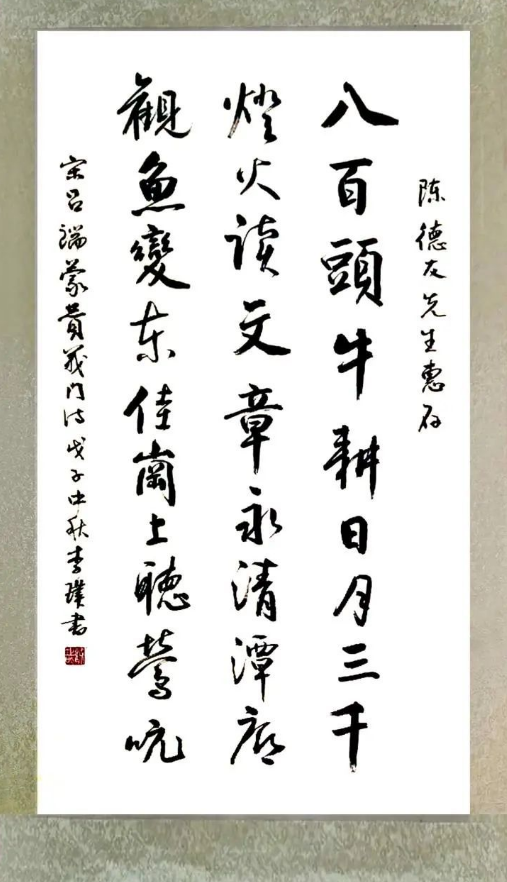 陈德友先生惠存
八百頭牛耕日月三千
燈火读文章永清潭
觀魚變东佳崗上聽莺吭
宋吕端蒙贵義门诗戊子中秋李璞书